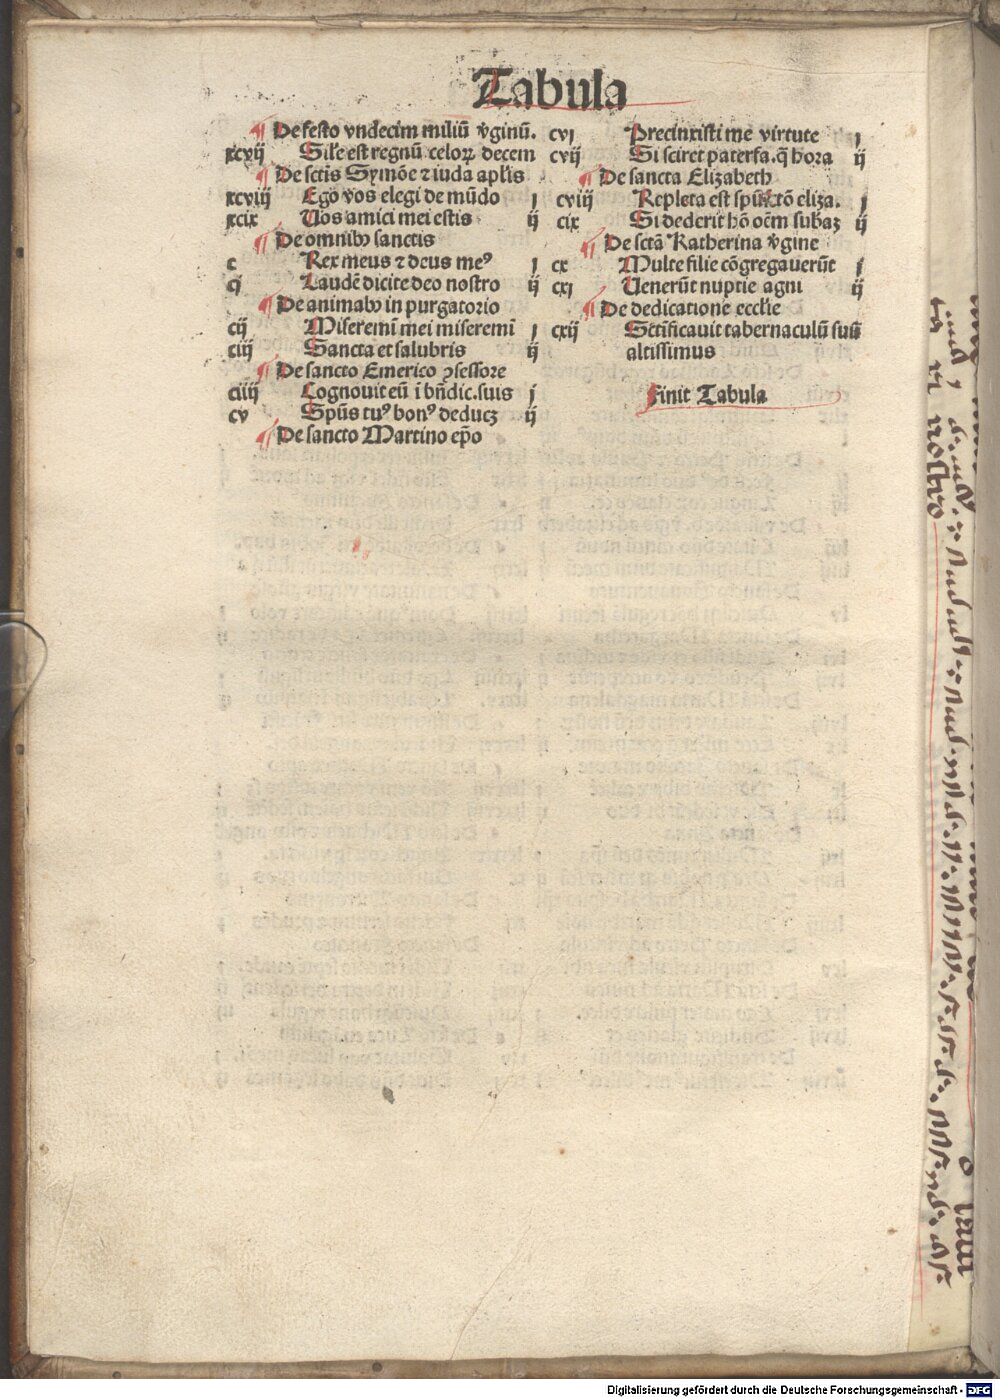 Tabula
¶ De festo vndecim miliū v̄ginū.
xcvij Sile est regnū celoꝝ decem
¶ De sctis Symōe ⁊ iuda aplis
xcviij Ego vos elegi de mūdo j
xcix Uos amici mei estis ij
¶ De omnibꝰ sanctis
c Rex meus ⁊ deus meꝰ j
cj Laudē dicite deo nostro ij
¶ De animabꝰ in purgatorio
cij Miseremī mei miseremī j
ciij Sancta et salubris ij
¶ De sancto Emerico ꝯfessore
ciiij Cognouit eū ī bn̄dic.suis j
cv Spūs tuꝰ bonꝰ deducꝫ ij
¶ De sancto Martino ep̄o
cvj Precinxisti me virtute j
cvij Si sciret paterfa.q̄ hora ij
¶ De sancta Elizabeth
cviij Repleta est spū sctō eliza. j
cix Si dederit hō oēm subaꝫ ij
¶ De sctā Katherina v̄gine
cx Multe filie cōgregauerūt j
cxj Uenerūt nuptie agni ij
¶ De dedicatione ecclie
cxij Sctificauit tabernaculū suū
altissimus
Finit Tabula
nostro
Digitalisierung gefördert durch die Deutsche Forschungsgemeinschaft - DFG